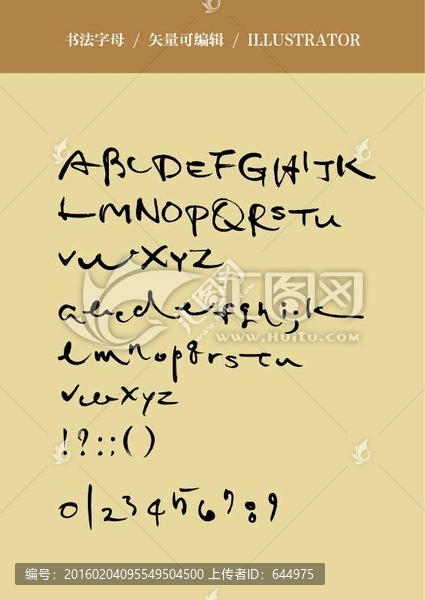 书法字母 / 矢量可编辑 / ILLUSTRATOR
ABCDEFGHIJK
LMNOPQRSTU
VWXYZ
abcdefghijk
lmnopqrstu
vwxyz
!?:;()
0123456789
汇图网
www.Huitu.com
编号：20160204095549504500 上传者ID：644975